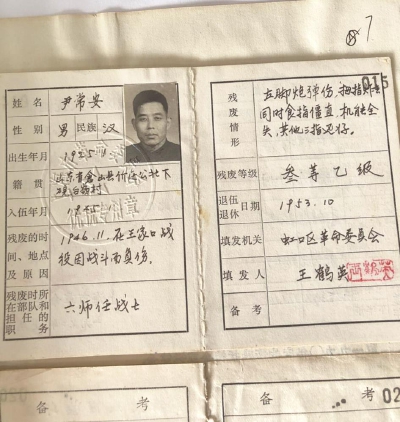 7
姓名 尹常安
性别 男 民族 汉
出生年月 1925.1
籍贯 山东省仓山县
入伍年月
残废的时间、地点及原因 1946.11.在王家口战
役因战斗而负伤。
残废时所在部队和担任的职务 六师任战士
残废情形 左脚炮弹伤,拇指
同时食指僵直,机能全
失,其他三指还好。
残废等级 叁等乙级
退伍退休日期 1953.10
填发机关 虹口区革命委员会
填发人 王鹤英
备考
015
备考
备考 02